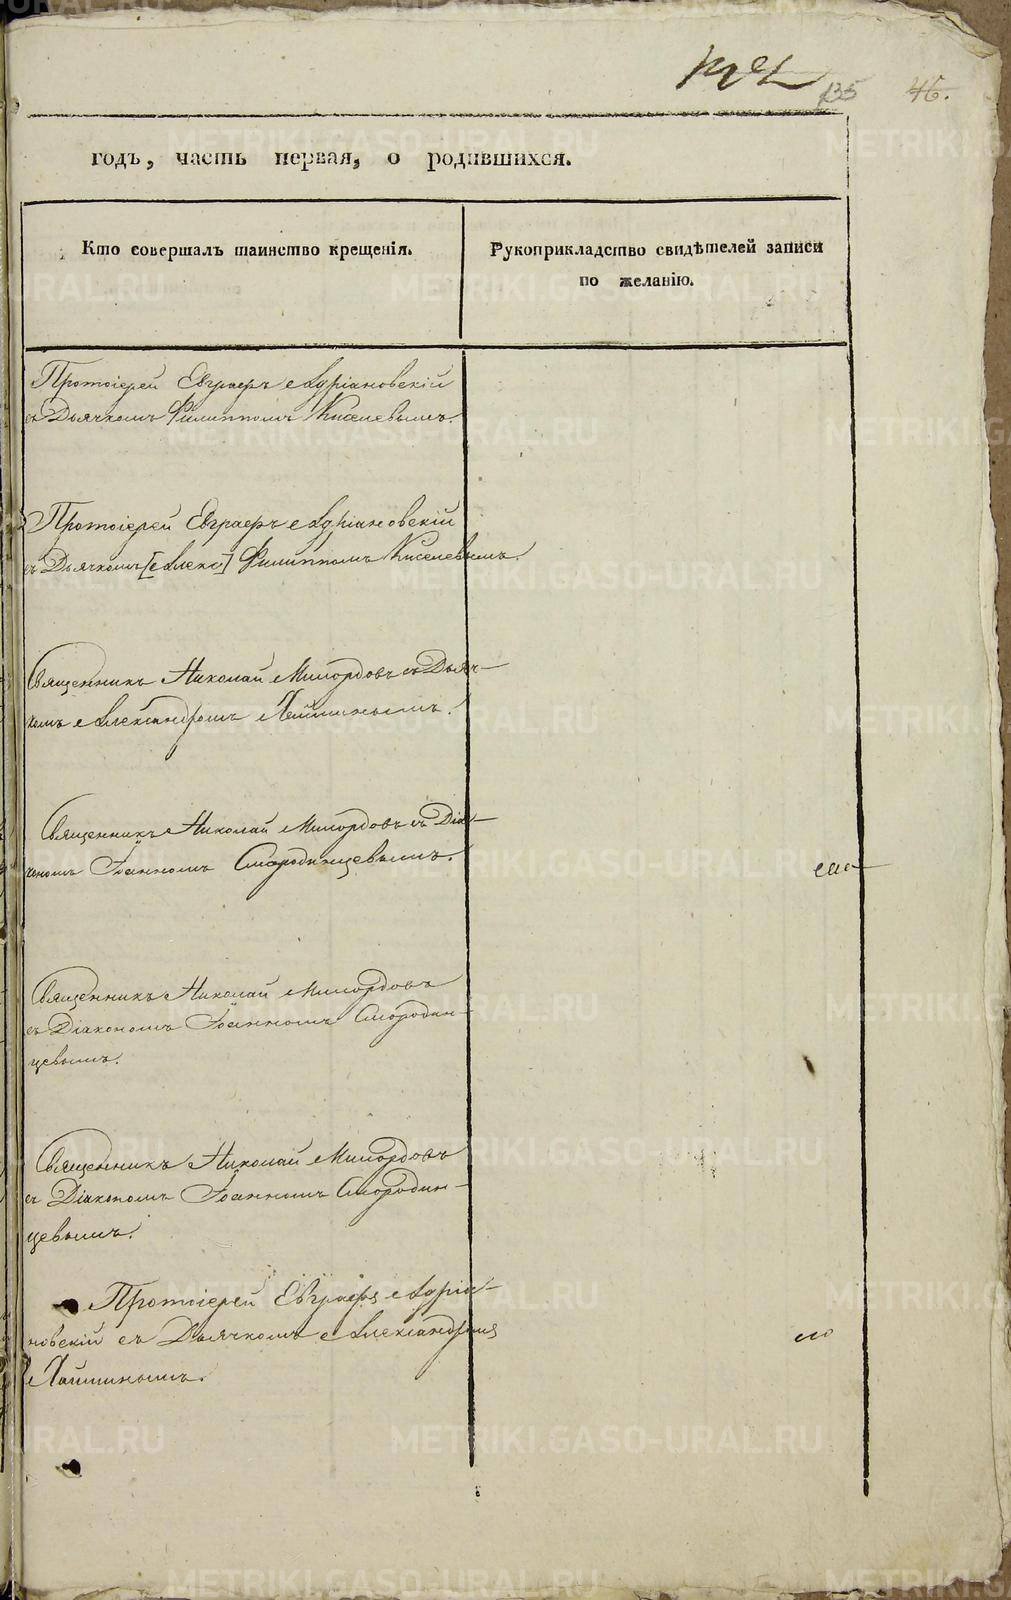 135 46.
годъ, часть первая, о родившихся.
Кто совершалъ таинство крещенія.
Рукоприкладство свидѣтелей записи
по желанію.
Протоіерей Евграфъ Адріановскій
съ Дьячкомъ Филиппомъ Киселевымъ.
Протоіерей Евграфъ Адріановскій
съ Дьячкомъ [Алекс] Филиппомъ Киселевымъ.
Священникъ Николай Милордовъ съ Дьяч-
комъ Александромъ
Священникъ Николай Милордовъ съ Діа-
кономъ Іоанномъ Смородинцевымъ.
Священникъ Николай Милордовъ
съ Діакономъ Іоанномъ Смородин-
цевымъ.
Священникъ Николай Милордовъ
съ Діакономъ Іоанномъ Смородин-
цевымъ.
Протоіерей Евграфъ Адріа-
новскій съ Дьячкомъ Александромъ
METRIKI.GASO-URAL.RU